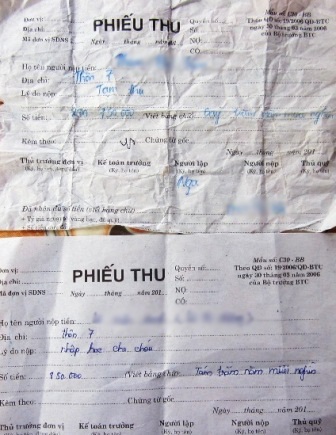 Đơn vị:
Địa chỉ:
Mã đơn vị SDNS
PHIẾU THU
Ngày tháng năm 201
Quyển số:
Số:
NỢ:
CÓ:
Mẫu số: C30 - BB
Theo QĐ số 19/2006/QĐ-BTC
ngày 30 tháng 03 năm 2006
của Bộ trưởng BTC
Họ tên người nộp tiền:
Địa chỉ: Thôn 7
Lý do nộp: Tạm thu
Số tiền: 750.000 (Viết bằng chữ): bảy trăm năm mươi nghìn
Kèm theo: Chứng từ gốc
Ngày tháng năm 201
Thủ trưởng đơn vị Kế toán trưởng Người lập Người nộp Thủ quỹ
(Ký, họ tên) (Ký, họ tên) (Ký, họ tên) (Ký, họ tên)
Đã nhận đủ số tiền (viết bằng chữ):
Đơn vị:
Địa chỉ:
Mã đơn vị SDNS
PHIẾU THU
Ngày tháng năm 201
Quyển số:
Số:
NỢ:
CÓ:
Mẫu số: C30 - BB
Theo QĐ số 19/2006/QĐ-BTC
ngày 30 tháng 03 năm 2006
của Bộ trưởng BTC
Họ tên người nộp tiền:
Địa chỉ: Thôn 7
Lý do nộp: nhập học cho cháu
Số tiền: 850000 (Viết bằng chữ): Tám trăm năm mươi nghìn
Kèm theo: Chứng từ gốc
Ngày tháng năm 201
Thủ trưởng đơn vị Kế toán trưởng Người lập Người nộp Thủ quỹ